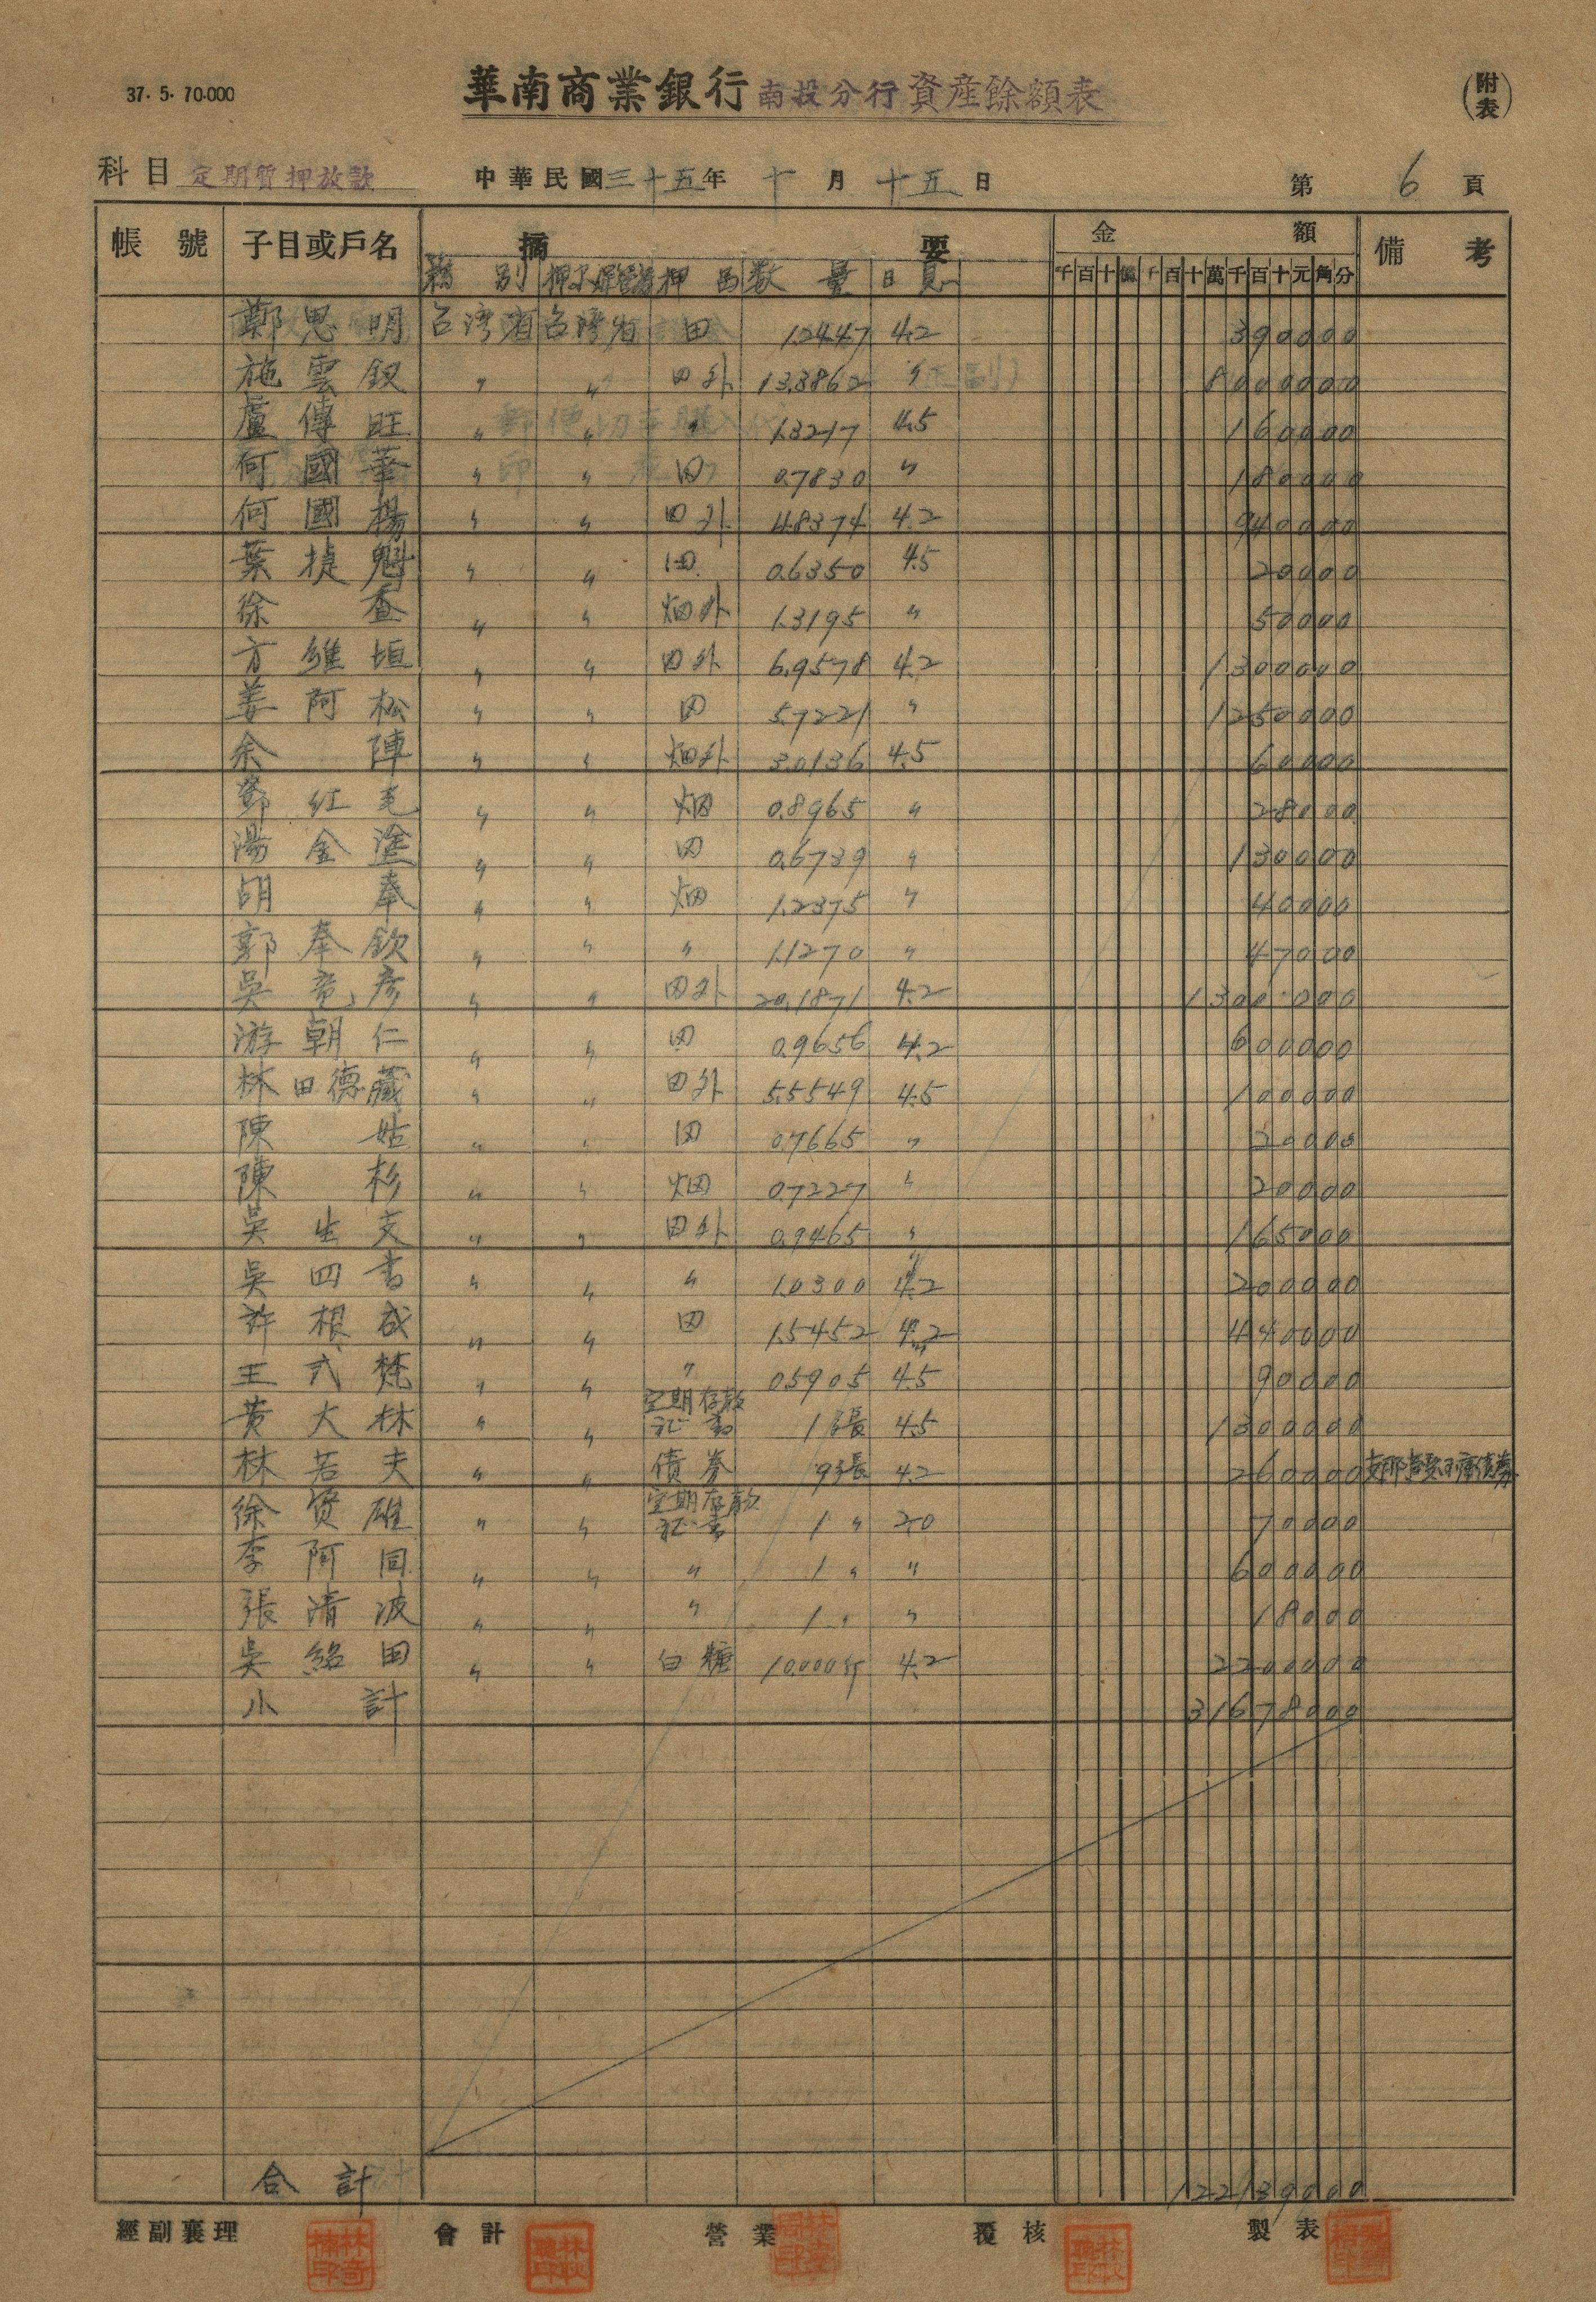 37. 5. 70.000
華南商業銀行 南投分行 資産餘額表
(附表)
科目 定期質押放款 中華民國三十五年 十 月 十五 日 第 6 頁
帳號 子目或戶名 摘要 金額 備考
押品 数量 日息 千百十億千百十萬千百十元角分
鄭思明 台湾省 台湾省 田 1.2447 4.2 390000
施雲釵 〃 〃 田外 13.3862 〃 8000000
盧傳旺 〃 〃 〃 1.3217 4.5 160000
何國華 〃 〃 田 0.7830 〃 180000
何國楊 〃 〃 田外 4.8374 4.2 940000
葉捷魁 〃 〃 田 0.6350 4.5 20000
徐查 〃 〃 畑外 1.3195 〃 50000
方維垣 〃 〃 田外 6.9578 4.2 1300000
姜阿松 〃 〃 田 5.7221 〃 1250000
余陣 〃 〃 畑外 3.0136 4.5 60000
鄧紅毛 〃 〃 畑 0.8965 〃 28000
湯金塗 〃 〃 田 0.6739 〃 130000
胡奉 〃 〃 畑 1.2375 〃 40000
郭奉欽 〃 〃 〃 1.1270 〃 47000
吳彦 〃 〃 田外 20.1871 4.2 13000000
游朝仁 〃 〃 田 0.9656 4.2 600000
林田德藏 〃 〃 田外 5.5549 4.5 100000
陳姑 〃 〃 田 0.7665 〃 20000
陳杉 〃 〃 畑 0.7227 〃 20000
吳生文 〃 〃 田外 0.9465 〃 165000
吳四書 〃 〃 〃 1.0300 4.2 200000
許根成 〃 〃 田 1.5452 4.2 440000
王式梵 〃 〃 〃 0.5905 4.5 90000
黃大林 〃 〃 定期存款証書 1張 4.5 1300000
林若夫 〃 〃 債券 9張 4.2 260000
徐賢雄 〃 〃 定期存款証書 1〃 2.0 70000
李阿同 〃 〃 〃 1〃 〃 600000
張清波 〃 〃 〃 1〃 〃 18000
吳紹田 〃 〃 白糖 10.000斤 4.2 2200000
小計 31678000
合計 122139000
經副襄理 會計 營業 覆核 製表